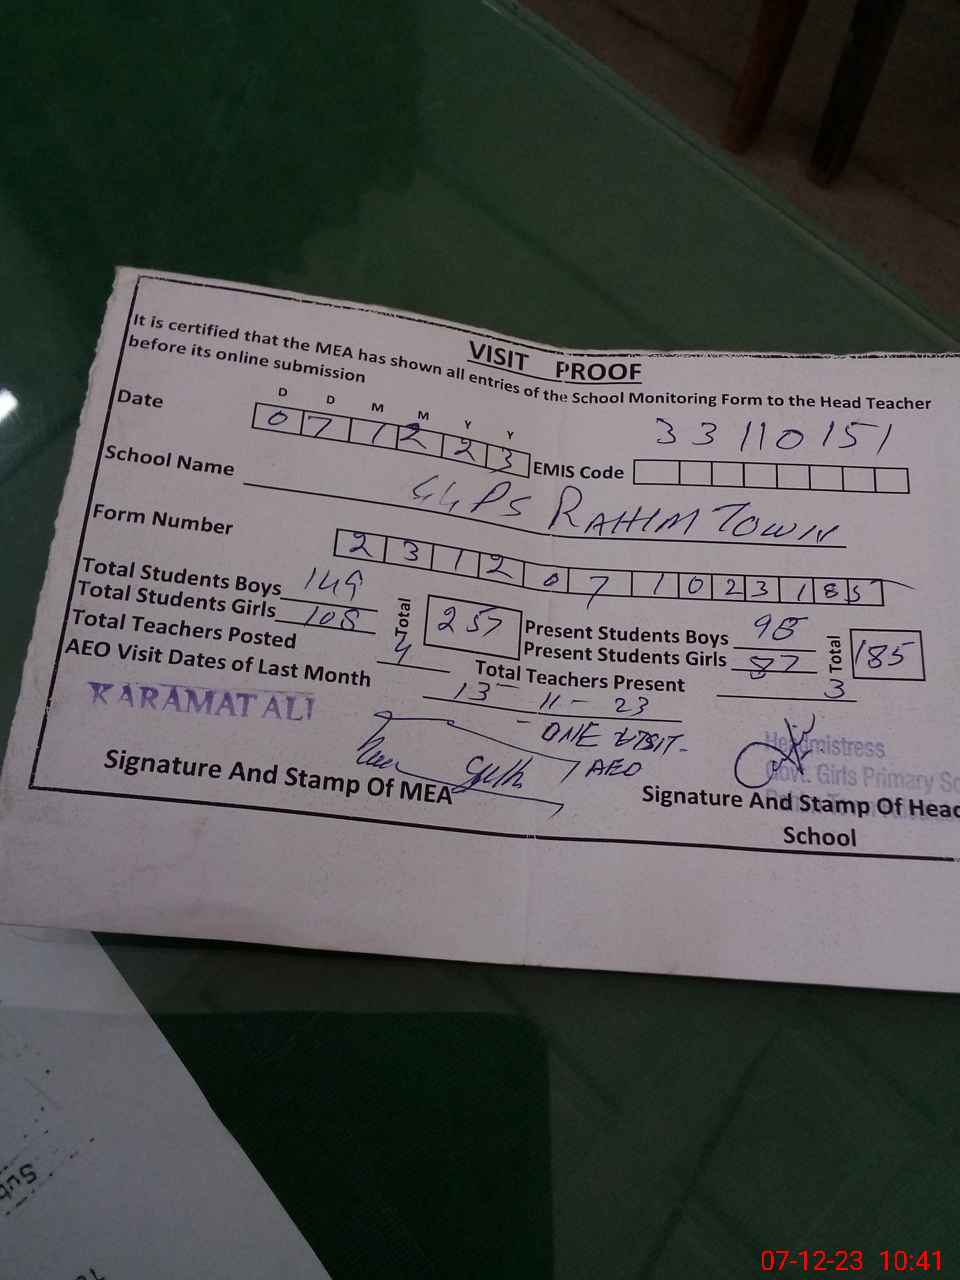 VISIT PROOF
It is certified that the MEA has shown all entries of the School Monitoring Form to the Head Teacher
before its online submission
D D M M Y Y
Date 0 7 1 2 2 3 EMIS Code 33110151
School Name GGPS RAHIM TOWN
Form Number 2 3 1 2 0 7 1 0 2 3 1 8 5
Total Students Boys 149 Total 257 Present Students Boys 98 Total 185
Total Students Girls 108 Present Students Girls 87
Total Teachers Posted 4 Total Teachers Present 3
AEO Visit Dates of Last Month 13 - 11 - 23
- ONE VISIT -
AEO
KARAMAT ALI
Headmistress
Govt. Girls Primary Sc
Signature And Stamp Of MEA
Signature And Stamp Of Head
School
07-12-23 10:41